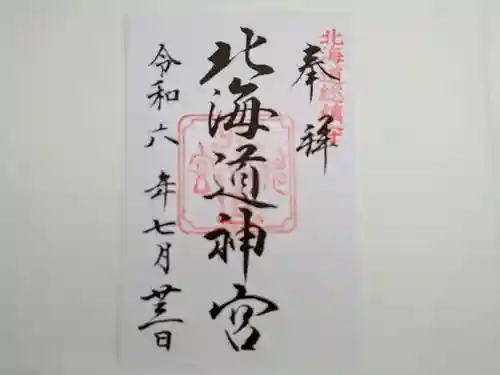 北海道総鎮守
奉拝
北海道神宮
令和六年七月廿三日